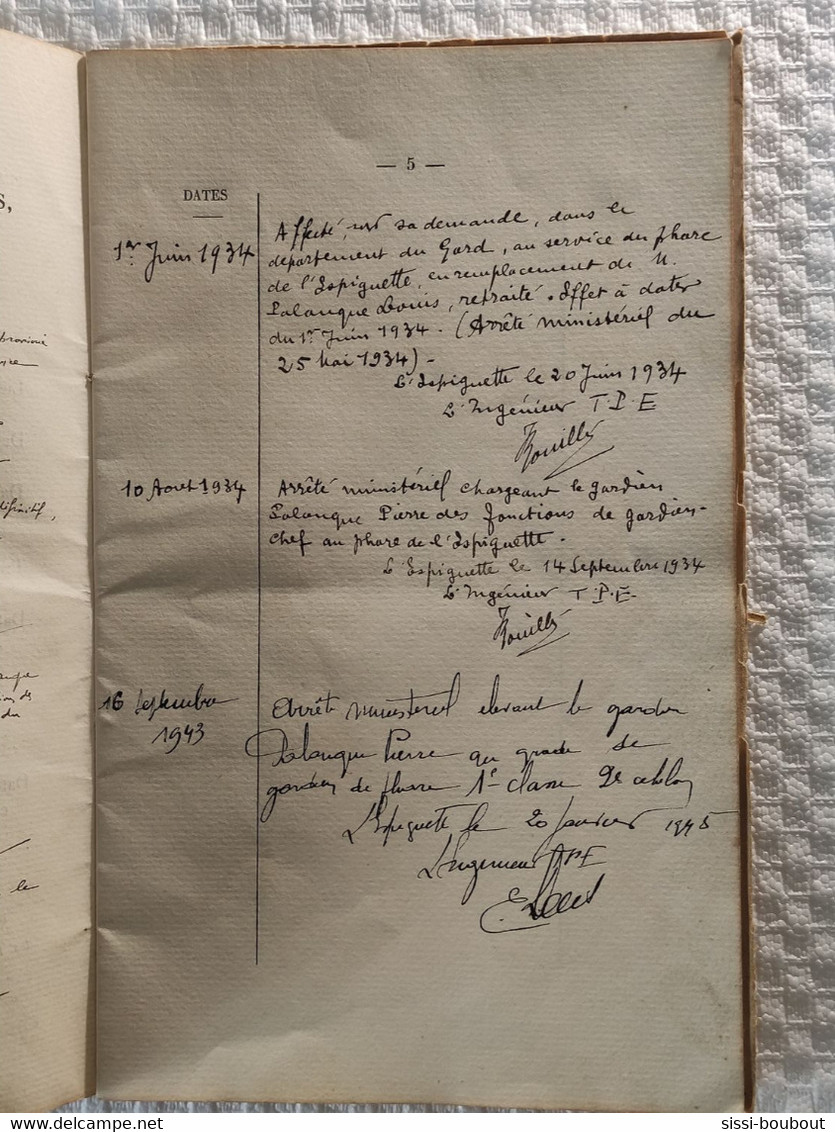 — 5 —
DATES
S,
1er Juin 1934
Affecté, sur sa demande, dans le
département du Gard, au service du phare
de l'Espiguette, en remplacement de M.
Palanque Louis, retraité. Effet à dater
du 1er Juin 1934. (Arrêté ministériel du
25 Mai 1934) -
L'Espiguette le 20 Juin 1934
L'Ingénieur T.P.E
10 Aout 1934
Arrêté ministériel chargeant le gardien
Palanque Pierre des fonctions de gardien-
chef au phare de l'Espiguette.
L'Espiguette le 14 Septembre 1934
L'Ingénieur T.P.E-
16 Septembre
1943
Arrêté ministériel élevant le gardien
Palanque Pierre au grade de
gardien de phare 1e classe 2e échelon
L'Espiguette le 20 Janvier 1945
L'Ingénieur TPE
le
du
sissi-boubout